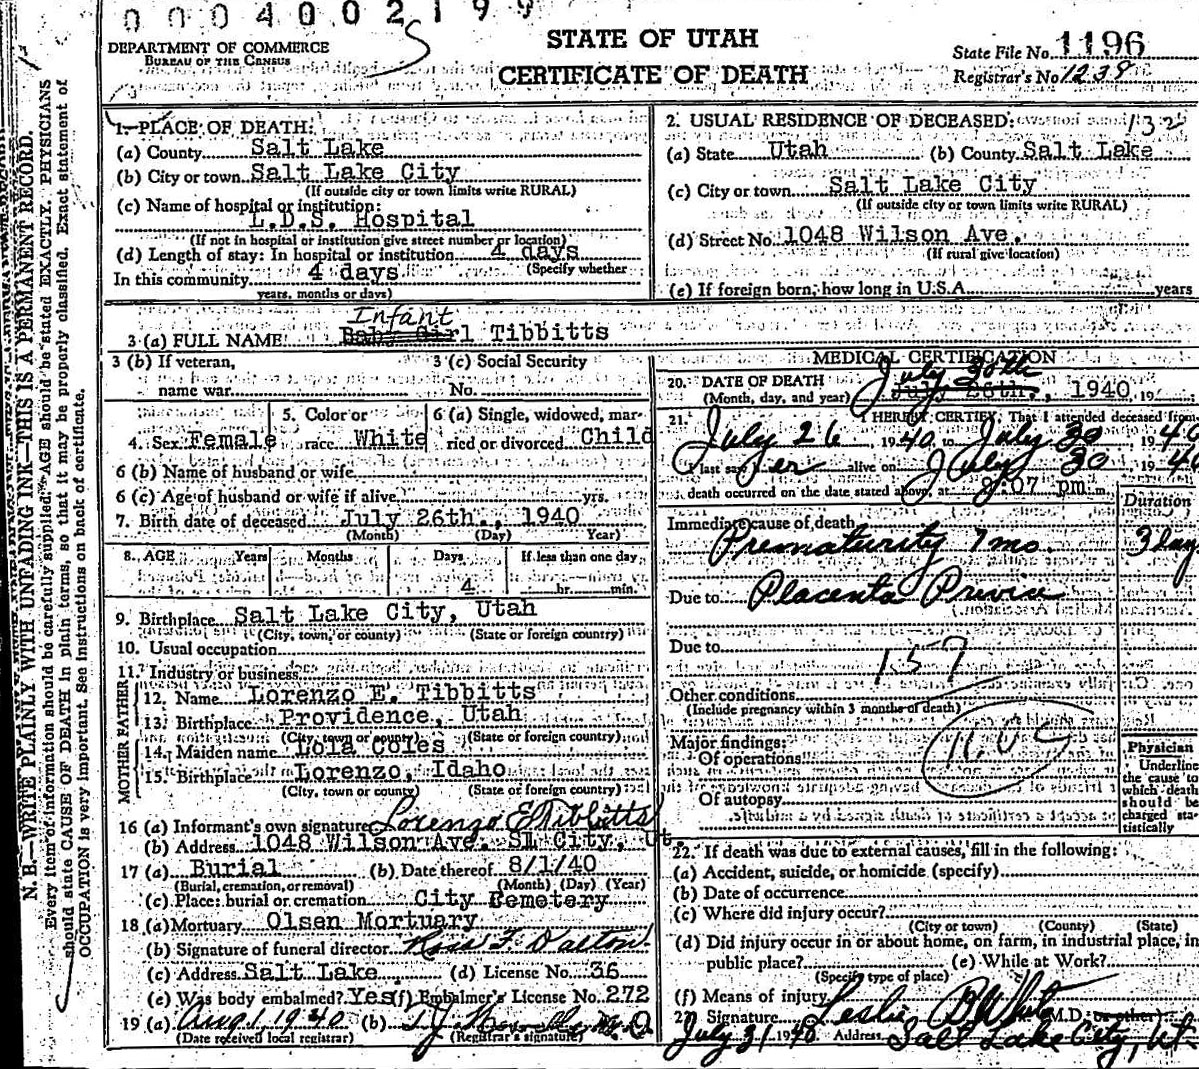 0 0 0 4 0 0 2 1 9 9
DEPARTMENT OF COMMERCE
BUREAU OF THE CENSUS
STATE OF UTAH
CERTIFICATE OF DEATH
State File No. 1196
Registrar's No. 1239
N. B.—WRITE PLAINLY WITH UNFADING INK—THIS IS A PERMANENT RECORD.
Every item of information should be carefully supplied. AGE should be stated EXACTLY. PHYSICIANS
should state CAUSE OF DEATH in plain terms, so that it may be properly classified. Exact statement of
OCCUPATION is very important. See instructions on back of certificate.
1. PLACE OF DEATH:
(a) County Salt Lake
(b) City or town Salt Lake City
(If outside city or town limits write RURAL)
(c) Name of hospital or institution:
L.D.S. Hospital
(If not in hospital or institution give street number or location)
(d) Length of stay: In hospital or institution 4 days
(Specify whether
In this community 4 days
years, months or days)
2. USUAL RESIDENCE OF DECEASED: 132
(a) State Utah (b) County Salt Lake
(c) City or town Salt Lake City
(If outside city or town limits write RURAL)
(d) Street No. 1048 Wilson Ave.
(If rural give location)
(e) If foreign born, how long in U.S.A. years
Infant
3 (a) FULL NAME Baby Girl Tibbitts
3 (b) If veteran,
name war
3 (c) Social Security
No.
4. Sex Female
5. Color or
race White
6 (a) Single, widowed, mar-
ried or divorced Child
6 (b) Name of husband or wife
6 (c) Age of husband or wife if alive yrs.
7. Birth date of deceased July 26th., 1940
(Month) (Day) Year)
8. AGE Years Months Days If less than one day
4 hr. min.
9. Birthplace Salt Lake City, Utah
(City, town, or county) (State or foreign country)
10. Usual occupation
11. Industry or business
FATHER
12. Name Lorenzo E. Tibbitts
13. Birthplace Providence, Utah
(City, town or county) (State or foreign country)
MOTHER
14. Maiden name Lola Coles
15. Birthplace Lorenzo, Idaho
(City, town or county) (State or foreign country)
16 (a) Informant's own signature Lorenzo E Tibbitts
(b) Address 1048 Wilson Ave. SL City, Ut.
17 (a) Burial (b) Date thereof 8/1/40
(Burial, cremation, or removal) (Month) (Day) (Year)
(c) Place: burial or cremation City Cemetery
18 (a) Mortuary Olsen Mortuary
(b) Signature of funeral director Ross F Dalton
(c) Address Salt Lake (d) License No. 36
(e) Was body embalmed? Yes (f) Embalmer's License No. 272
19 (a) Aug 1, 1940 (b) M.D
(Date received local registrar) (Registrar's signature)
MEDICAL CERTIFICATION
July 30th
20. DATE OF DEATH July 26th., 1940, 19
(Month, day, and year)
21. I HEREBY CERTIFY, That I attended deceased from
July 26, 1940 to July 30, 1940
I last saw her alive on July 30, 1940
death occurred on the date stated above, at 8:07 pm m.
Duration
Immediate cause of death
Prematurity 7 mo. 3 day
Due to Placenta Previa
Due to
157
Other conditions
(Include pregnancy within 3 months of death)
Major findings:
Of operations
Of autopsy
Physician
Underline
the cause to
which death
should be
charged sta-
tistically
22. If death was due to external causes, fill in the following:
(a) Accident, suicide, or homicide (specify)
(b) Date of occurrence
(c) Where did injury occur?
(City or town) (County) (State)
(d) Did injury occur in or about home, on farm, in industrial place, in
public place? (e) While at Work?
(Specify type of place)
(f) Means of injury
23. Signature Leslie B White M.D. or other)
July 31 1940 Address Salt Lake City, Ut